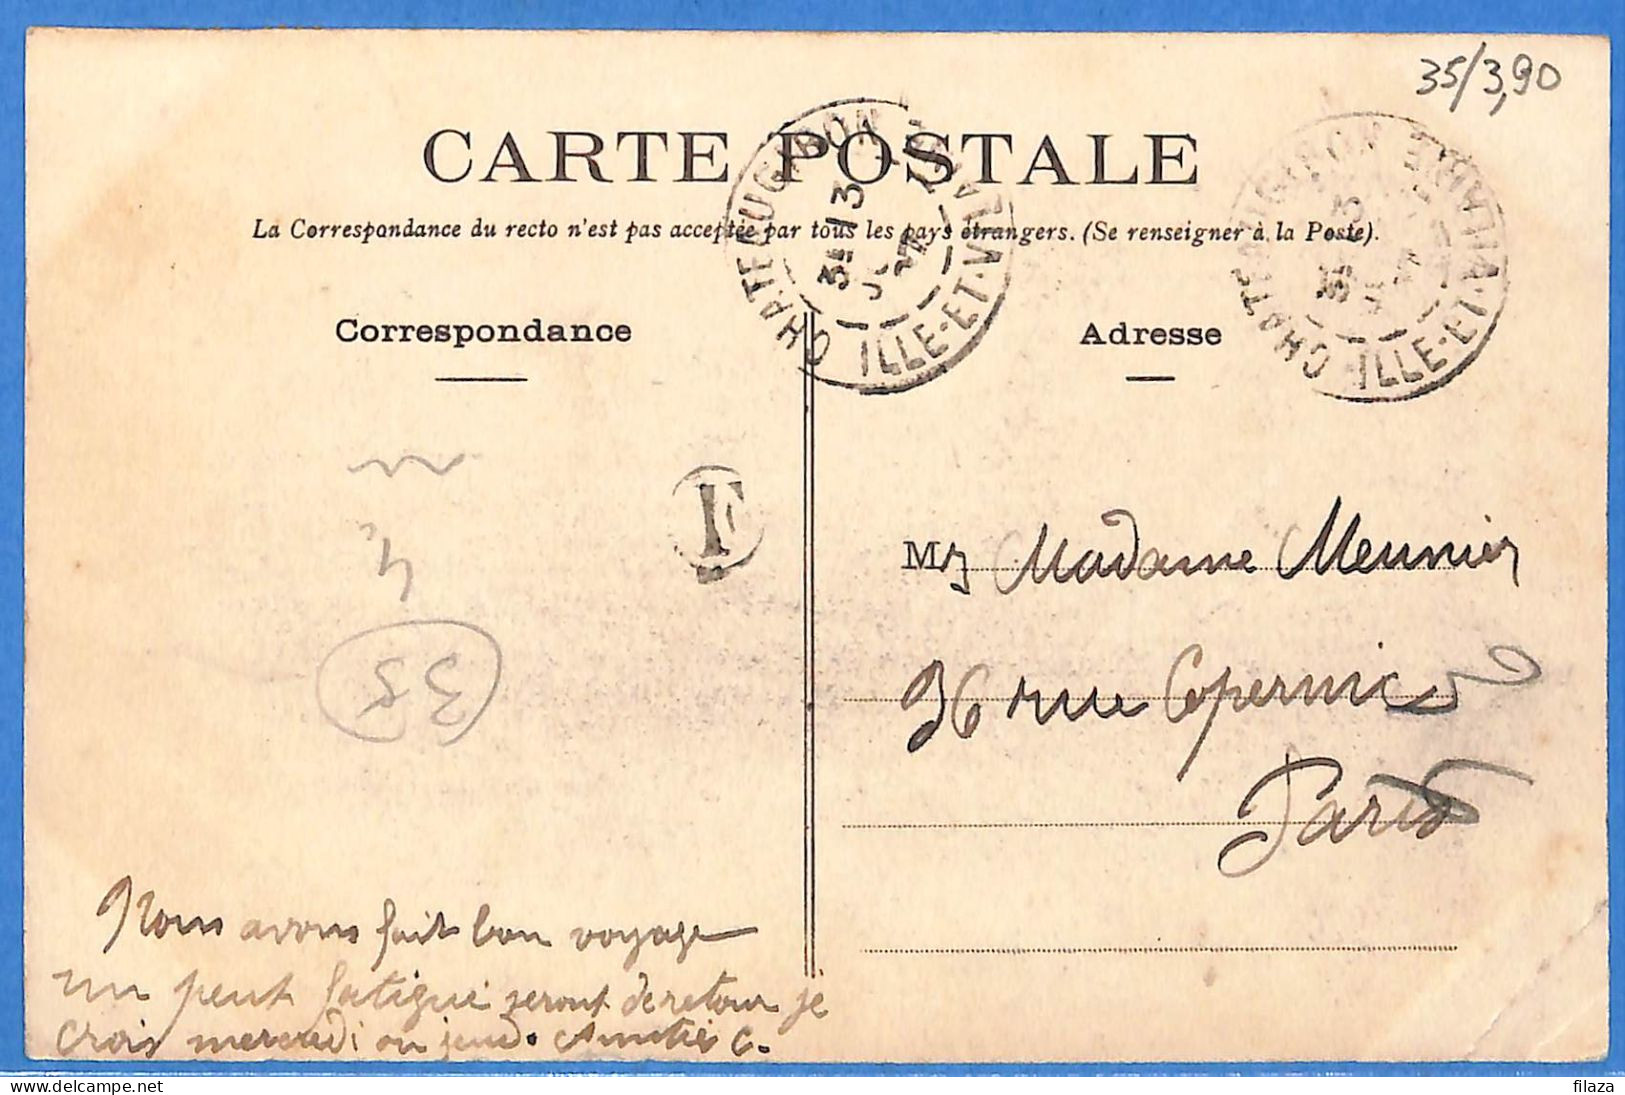 35/3,90
CARTE POSTALE
La Correspondance du recto n'est pas acceptée par tous les pays étrangers. (Se renseigner à la Poste).
CHATEAUGIRON
ILLE-ET-VILAINE
CHATEAUGIRON
ILLE-ET-VILAINE
Correspondance
Adresse
F
M Madame Meunier
36 rue Copernic
Paris
35
Nous avons fait bon voyage
un peut fatigué seront de retour je
crois mercredi ou jeudi. Amitiés C.
filaza